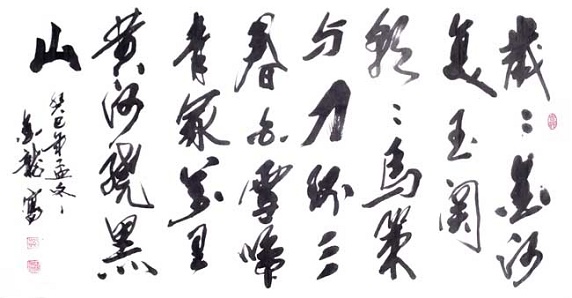 歲〻金河
复玉関
朝〻馬策
与刀环三
春白雪歸
青冢萬里
黄河繞黑
山
癸巳年孟冬
龍寫